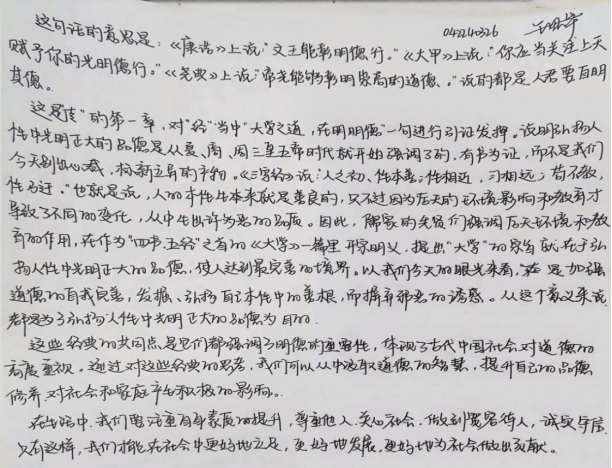 042240326
这句话的意思是:《康诰》上说:“文王能彰明德行。”《大甲》上说:“你应当关注上天
赋予你的光明德行。”《尧典》上说:“帝尧能够彰明崇高的道德。”说的都是人君要自明
其德。
这是“传”的第一章,对“经”当中“大学之道,在明明德”一句进行引证发挥。说明弘扬人
性中光明正大的品德是从夏、商、周三皇五帝时代就开始强调了的,有书为证,而不是我们
今天别出心裁,标新立异的产物。《三字经》说:人之初,性本善;性相近,习相远;苟不教,
性乃迁。”也就是说,人的本性生来就是善良的,只不过因为后天的环境影响和教育才
导致了不同的变化,从中生出许为恶的品质。因此,儒家的先贤们强调后天环境和教
育的作用,在作为“四书五经”之首的《大学》一篇里开宗明义,提出“大学”的宗旨就在于弘
扬人性中光明正大的品德,使人达到最完善的境界。以我们今天的眼光来看,是加强
道德的自我完善,发掘、弘扬自己本性中的善根,而摒弃邪恶的诱惑。从这个意义来说
都是为了弘扬人性中光明正大的品德为目的.
这些经典的共同点是它们都强调了明德的重要性,体现了古代中国社会对道德的
高度重视。通过对这些经典的思考,我们可以从中汲取道德的智慧,提升自己的品德
修养对社会和家庭产生积极的影响。
在生活中,我们要注重自身素质的提升,尊重他人、关心社会、做到宽容待人,诚实守信
只有这样,我们才能在社会中更好地立足,更好地发展,更好地为社会做出贡献。